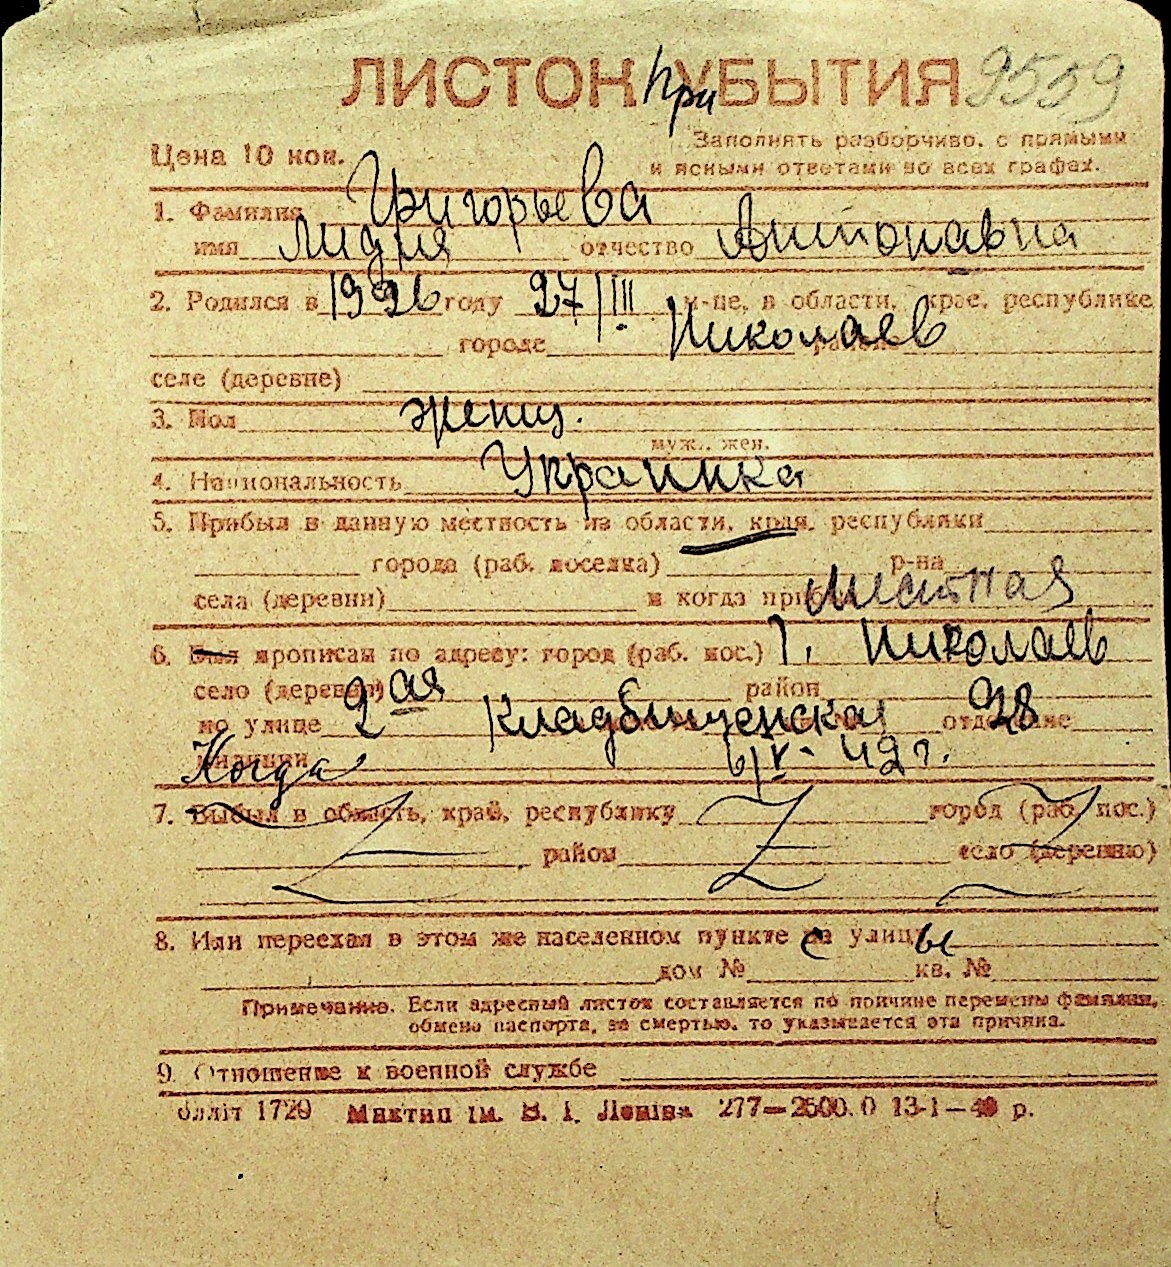 ЛИСТОК При УБЫТИЯ 9559
Цена 10 коп.
Заполнять разборчиво, с прямыми
и ясными ответами во всех графах.
1. Фамилия Григорьева
имя Лидия отчество Антонавна
2. Родился в 1926 году 27/III м-це, в области, крае, республике
городе Николаев районе
селе (деревне)
3. Пол женщ.
муж., жен.
4. Национальность Украинка
5. Прибыл в данную местность из области, края, республики
города (раб. поселка) р-на
села (деревни) и когда прибыл местная
6. Был прописан по адресу: город (раб. пос.) г. Николаев
село (деревня) район
по улице 2 ая Кладбищенская 28 отделение
милиции Когда 6/V-42 г.
7. Выбыл в область, край, республику Z город (раб. пос.)
Z район село (деревню) Z
8. Или переехал в этом же населенном пункте с улицы
дом № кв. №
Примечание. Если адресный листок составляется по причине перемены фамилии,
обмена паспорта, за смертью, то указывается эта причина.
9. Отношение к военной службе
блліт 1729 Миктип ім. В. І. Леніна 277—2500.0 13-1—40 р.